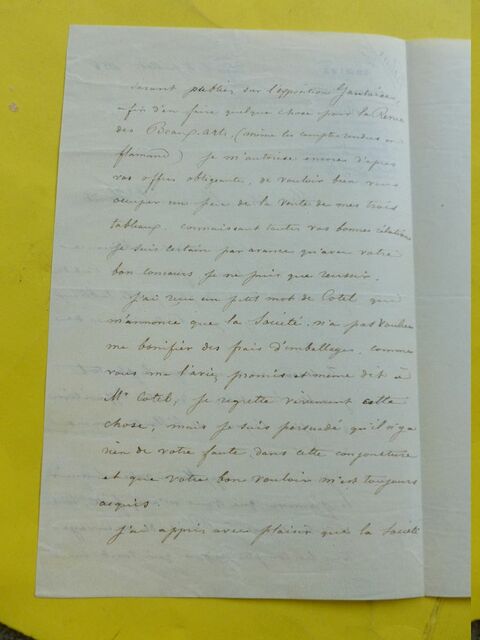 seront publiés sur l'exposition Gantaise,
afin d'en faire quelque chose pour la Revue
des Beaux-arts, (même les comptes rendus en
flamand) je m'autorise encore d'après
vos offres obligeantes, de vouloir bien vous
occuper un peu de la vente de mes trois
tableaux. connaissant toutes vos bonnes relations
je suis certain par avance qu'avec votre
bon concours je ne puis que réussir.
J'ai reçu un petit mot de Cotel qui
m'annonce que la Société n'a pas voulu
me bonifier des frais d'emballages, comme
vous me l'aviez promis et même dit à
Mr Cotel, je regrette vivement cette
chose, mais je suis persuadé qu'il n'y a
rien de votre faute dans cette conjoncture
et que votre bon vouloir m'est toujours
acquis.
J'ai appris avec plaisir que la Société